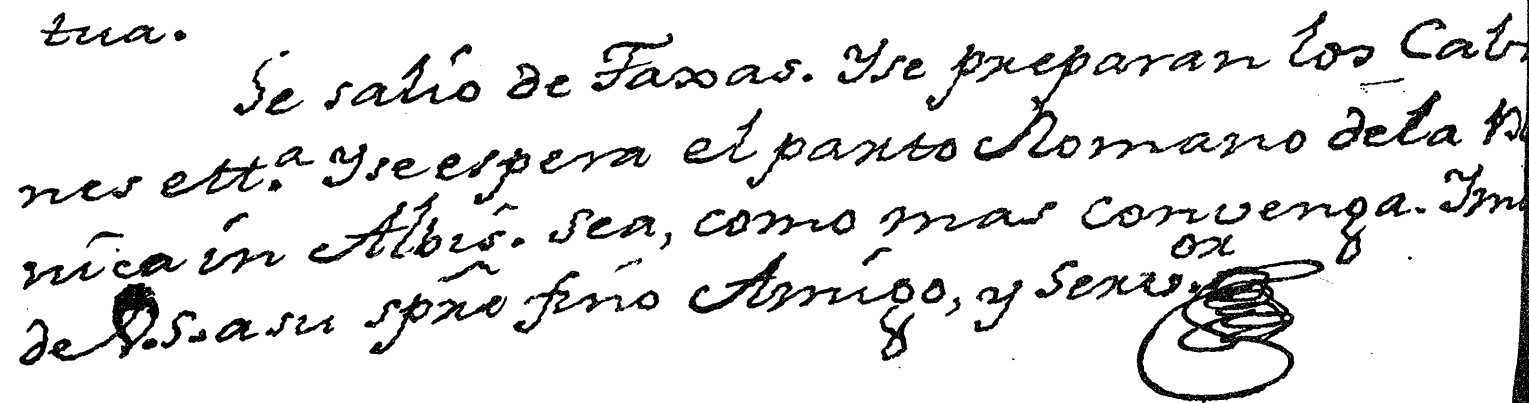 tua.
Se salio de Faxas. Yse preparan los
nes ett.ª Yse espera el parto Romano dela
nica in Albis. sea, como mas convenga.
de V.S. a su spre fino Amigo, y Serv.or